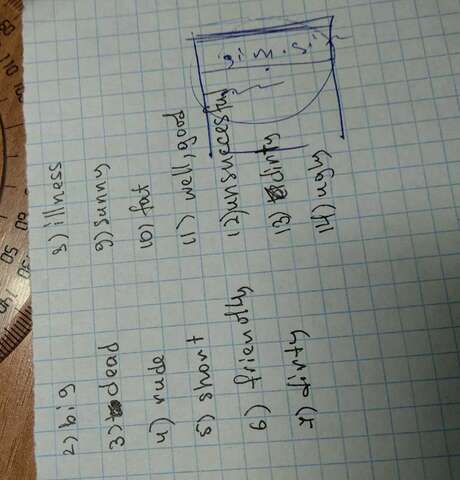 2) big
3) dead
4) rude
5) short
6) friendly
7) dirty
8) illness
9) sunny
10) fat
11) well, good
12) unsuccessful
13) dirty
14) ugly